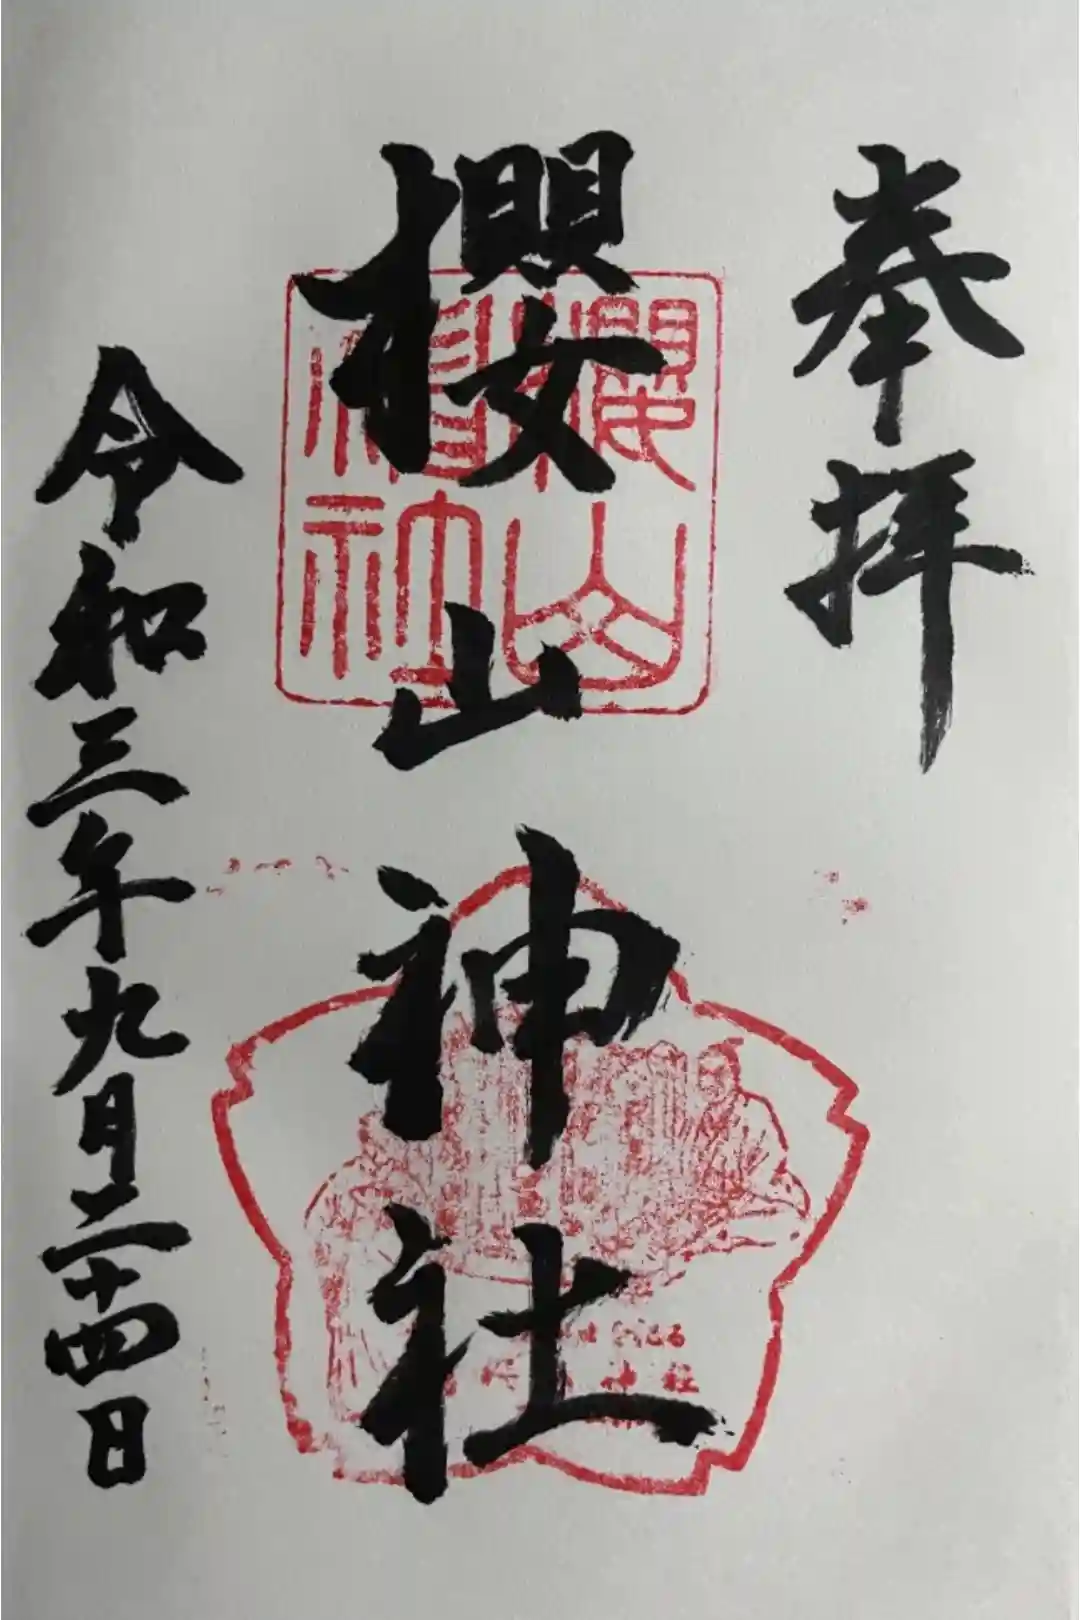 奉拝
櫻山神社
櫻山神社
令和三年九月二十四日